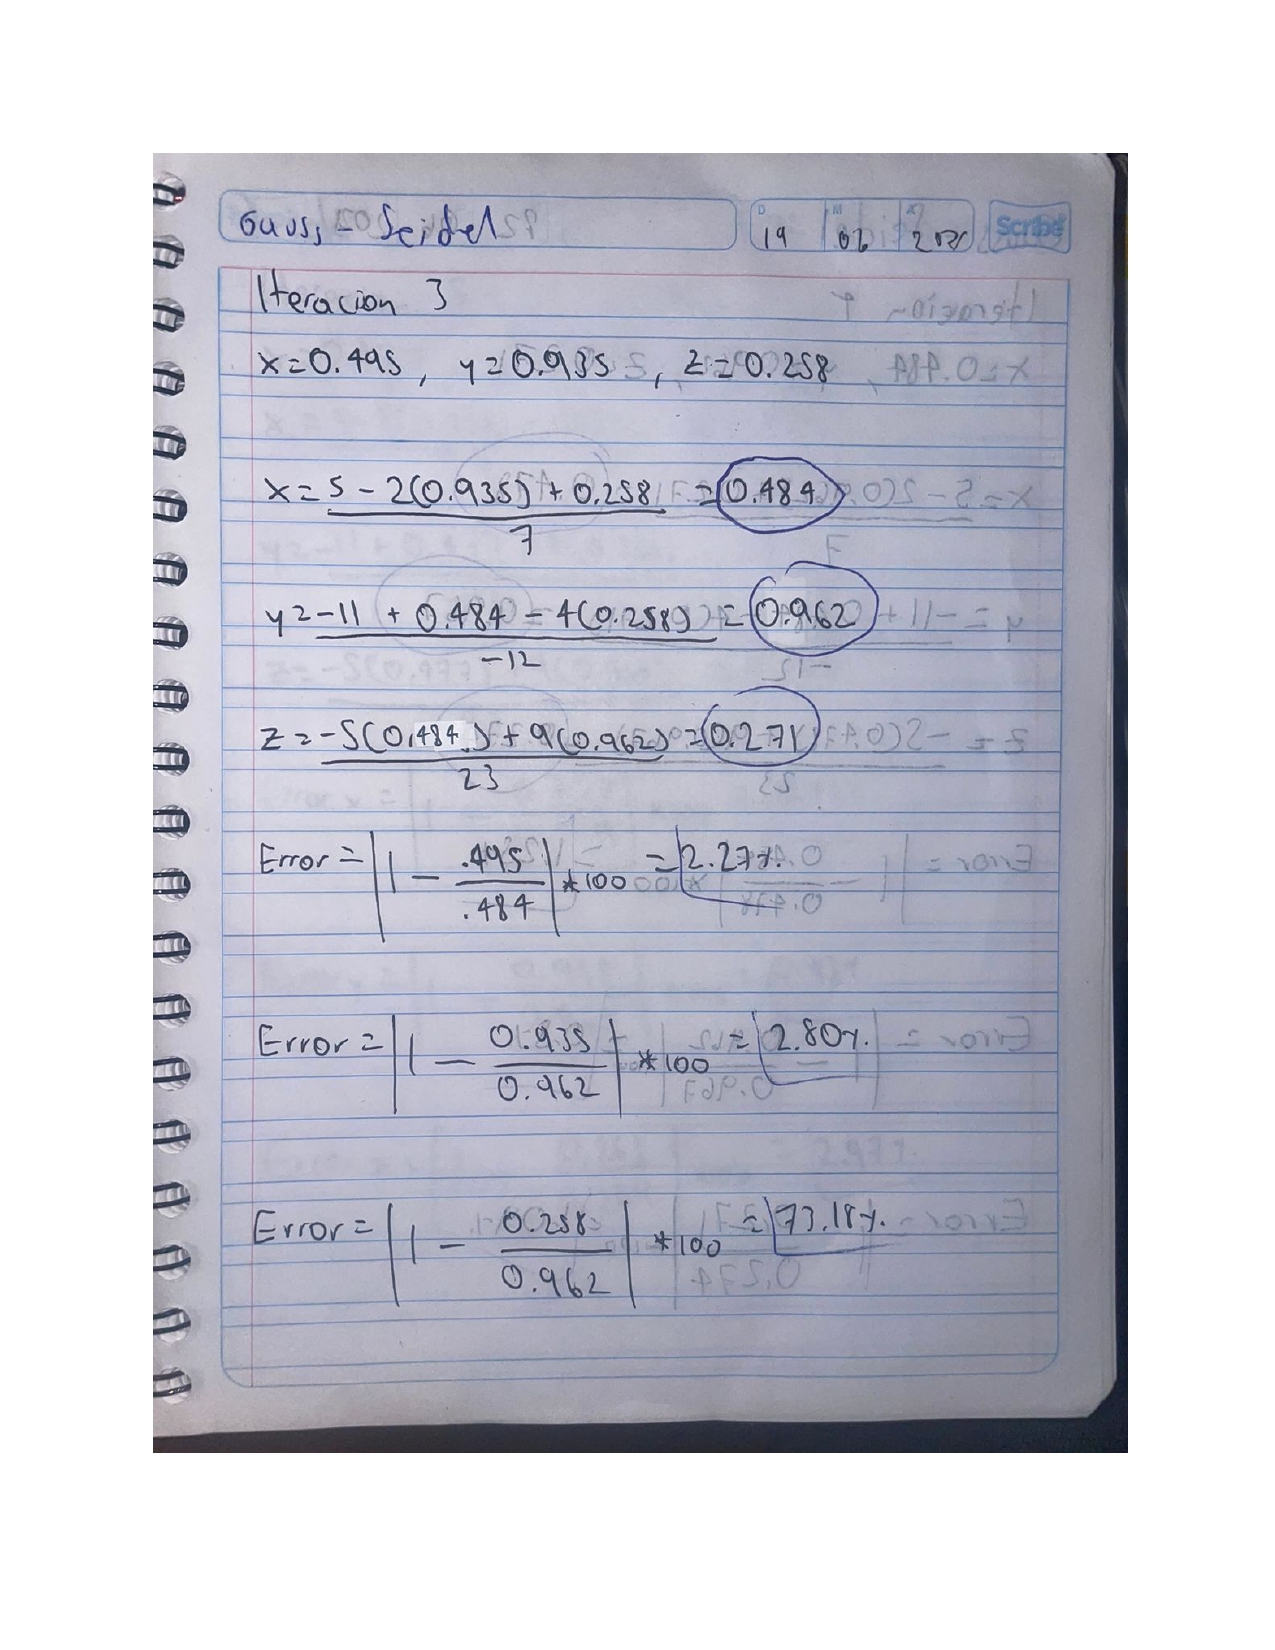 Gauss - Seidel
D M A
19 02 Scribe
Iteracion 3
x=0.495, y=0.935, z=0.258
x = 5 - 2(0.935) + 0.258 = 0.484
7
y = -11 + 0.484 - 4(0.258) = 0.962
-12
z = -5(0.484) + 9(0.962) = 0.271
23
Error = |1 - .495 / .484| *100 = 2.27%
Error = |1 - 0.935 / 0.962| *100 = 2.80%
Error = |1 - 0.258 / 0.962| *100 = 73.18%